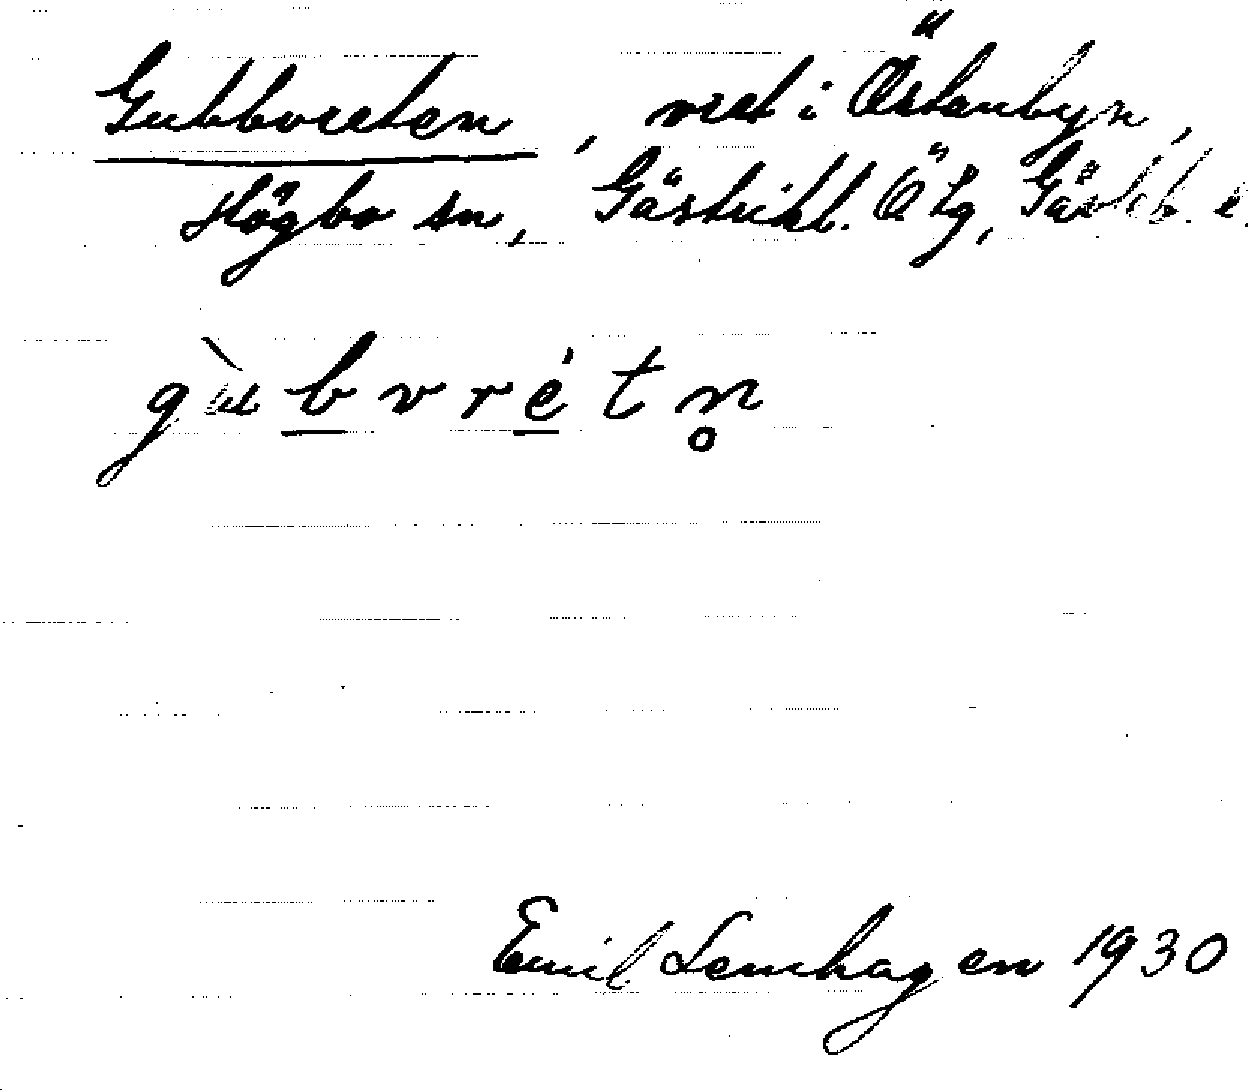 Gubbvreten, vret i Östanbyn,
Högbo sn, Gästrikl. Ö tg, Gävleb. l.
gu̇̀bvrétn̥
Emil Lenhagen 1930